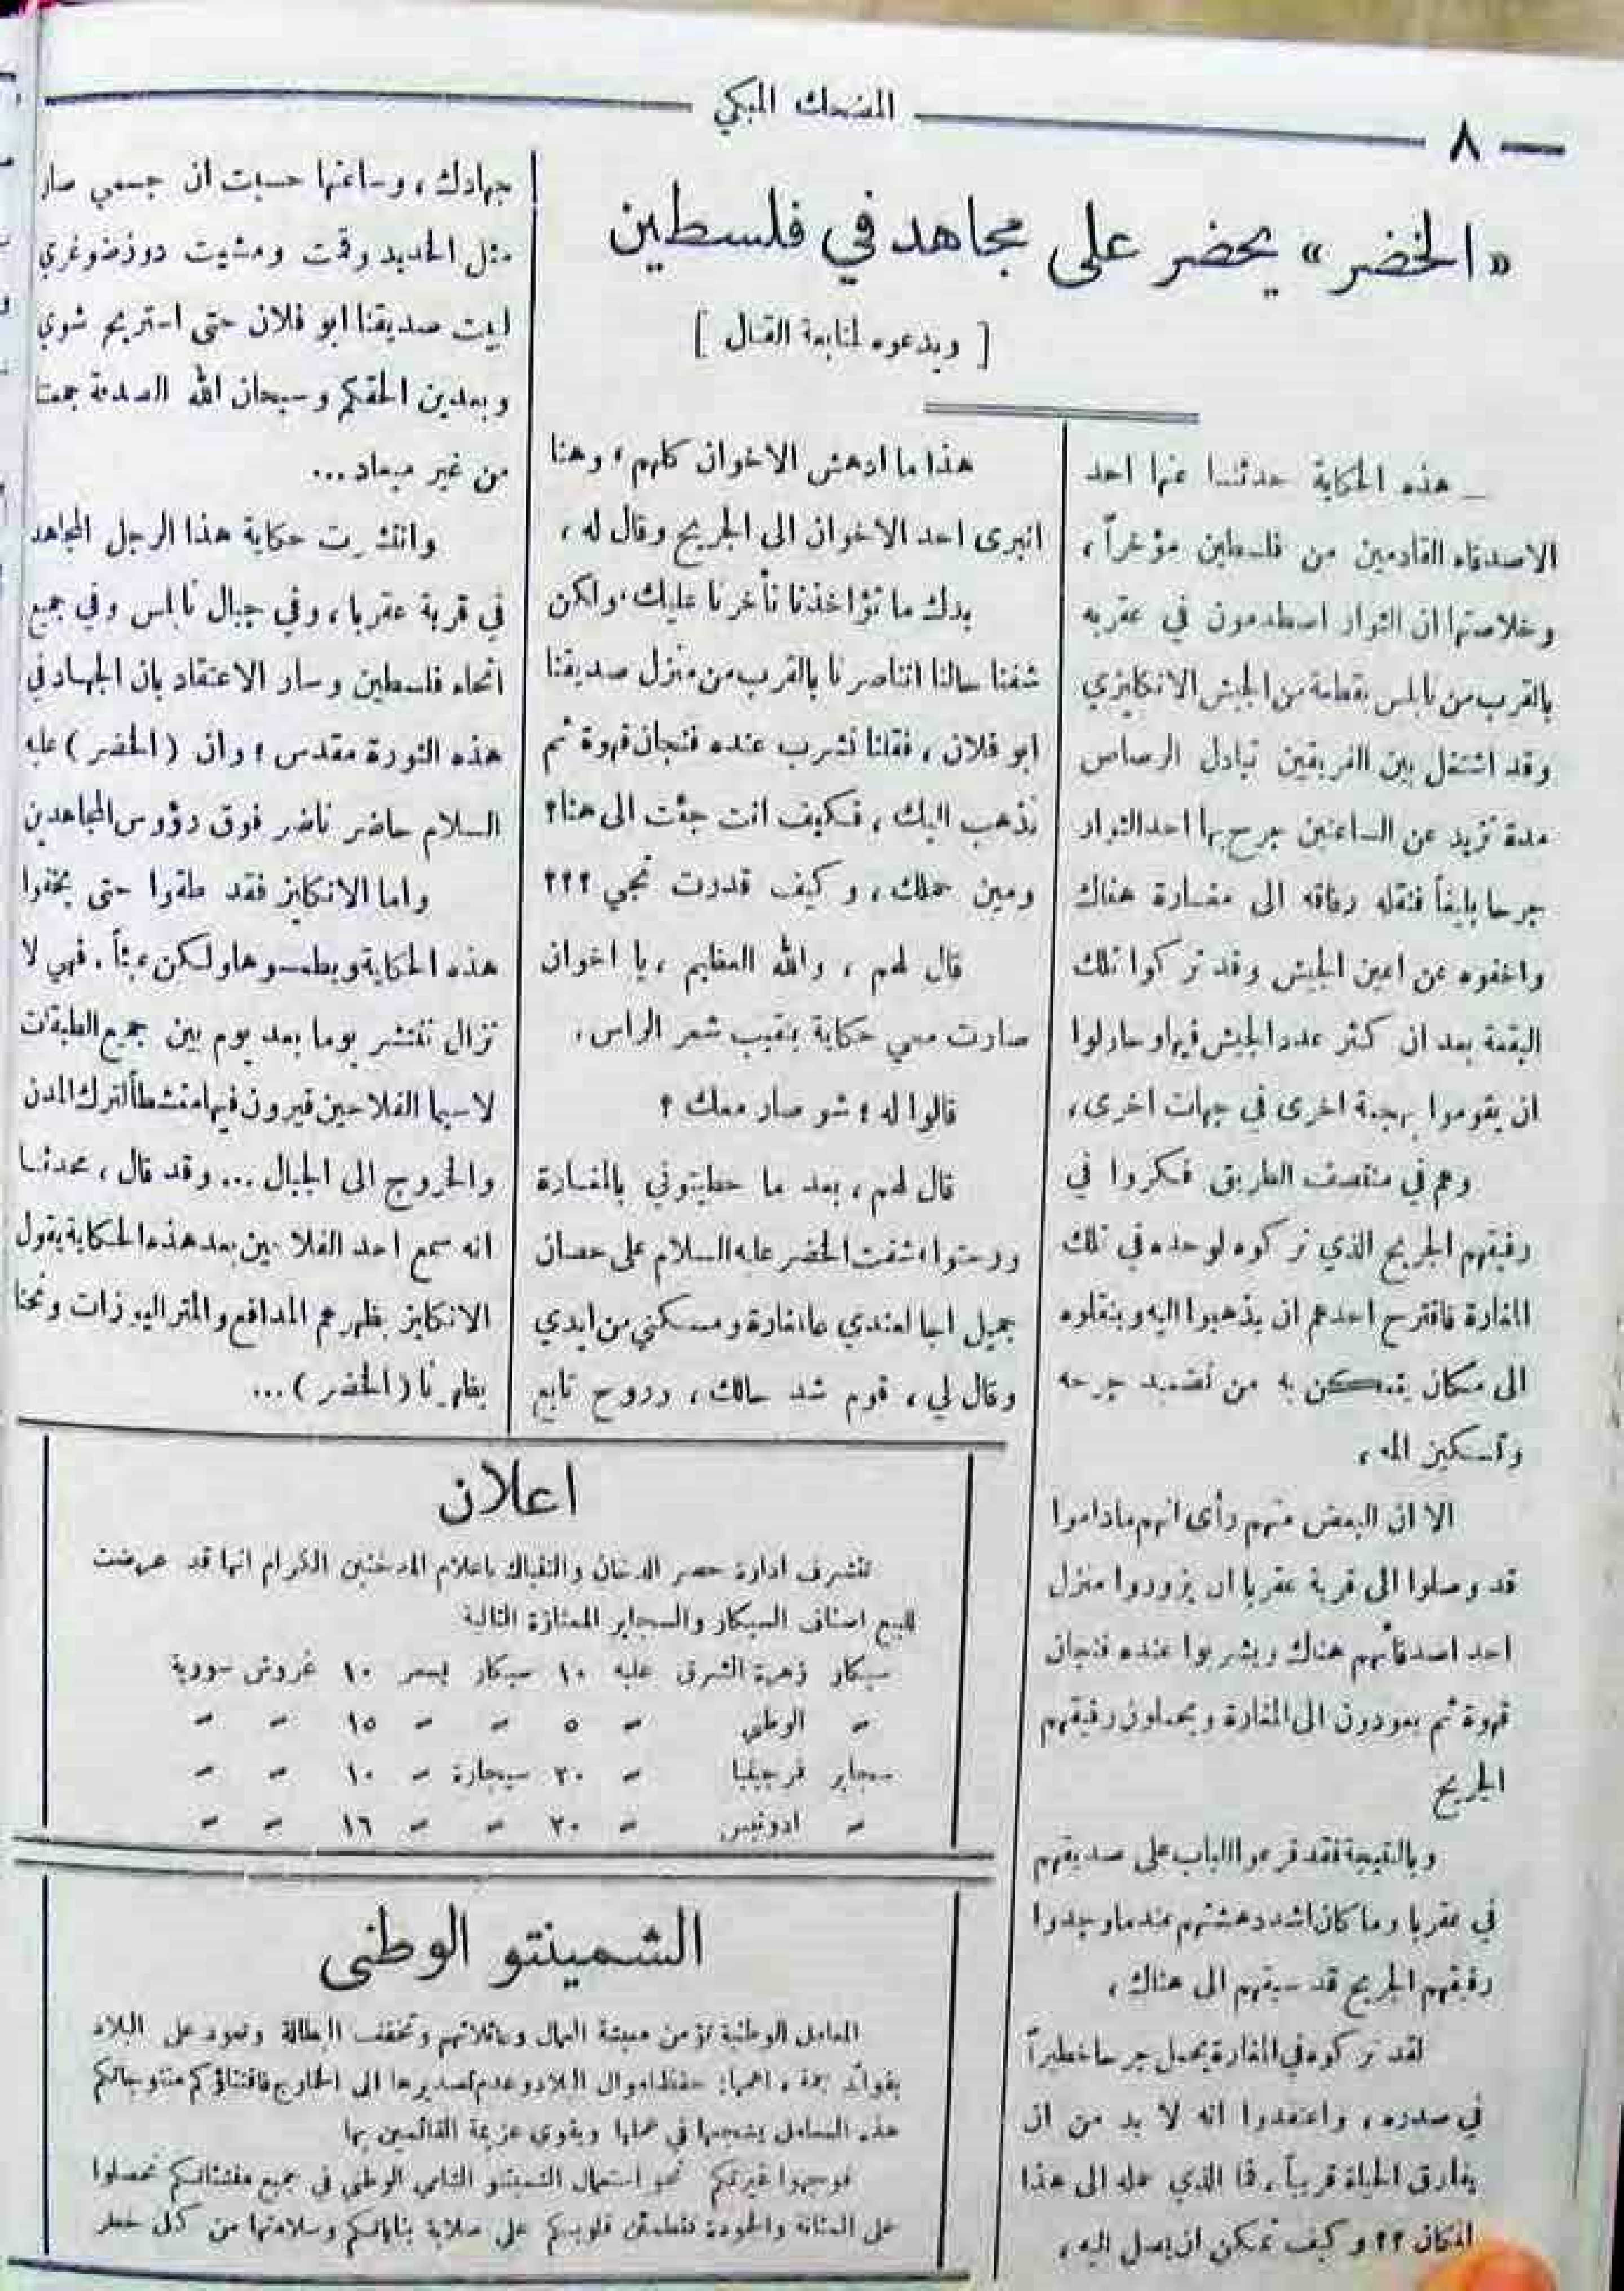 ٨
المضحك المبكي
«الخضر» يحضر على مجاهد في فلسطين
[ ويدعوه لمتابعة القتال ]
ـ هذه الحكاية حدثنا عنها احد
الاصدقاء القادمين من فلسطين مؤخراً ،
وخلاصتها ان الثوار اصطدمون في عقربه
بالقرب من نابلس بقطعة من الجيش الانكليزي
وقد اشتعل بين الفريقين تبادل الرصاص
مدة تزيد عن الساعتين جرح بها احد الثوار
جرحا بليغاً فنقله رفاقه الى مغارة هناك
واخفوه عن اعين الجيش وقد تركوا تلك
البقعة بعد ان كثر عدد الجيش فيها وحاولوا
ان يقوموا بهجمة اخرى في جهات اخرى ،
وهم في منتصف الطريق فكروا في
رفيقهم الجريح الذي تركوه لوحده في تلك
المغارة فاقترح احدهم ان يذهبوا اليه وينقلوه
الى مكان يتمكن به من تضميد جرحه
وتسكين المه ،
الا ان البعض منهم رأى انهم ماداموا
قد وصلوا الى قرية عقربا ان يزوروا منزل
احد اصدقائهم هناك ويشربوا عنده فنجان
قهوة ثم يعودون الى المغارة ويحملون رفيقهم
الجريح
وبالنتيجة فقد قرعوا الباب على صديقهم
في عقربا وما كان اشد دهشتهم عندما وجدوا
رفيقهم الجريح قد سبقهم الى هناك ،
لقد تركوه في المغارة يحمل جرحا خطيراً
في صدره ، واعتقدوا انه لا بد من ان
يفارق الحياة قريباً ، فما الذي حمله الى هذا
المكان ؟؟ وكيف تمكن ان يصل اليه ،
هذا ما ادهش الاخوان كلهم ؛ وهنا
انبرى احد الاخوان الى الجريح وقال له ،
بدك ما تؤاخذنا تأخرنا عليك . ولكن
شفنا حالنا اننا صرنا بالقرب من منزل صديقنا
ابو فلان ، فقلنا نشرب عنده فنجان قهوة ثم
نذهب اليك ، فكيف انت جئت الى هنا ؟
ومين حملك ، وكيف قدرت تجي ؟؟؟
قال لهم ، والله العظيم ، يا اخوان
صارت معي حكاية بتقيب شعر الراس .
قالوا له ؛ شو صار معك ؟
قال لهم ، بعد ما حطيتوني بالمغارة
ورحتوا ، شفت الخضر عليه السلام على حصان
جميل اجا لعندي عالمغارة ومسكني من ايدي
وقال لي ، قوم شد حالك ، وروح تابع
جهادك ، وساعتها حسيت ان جسمي صار
مثل الحديد وقمت ومشيت دوز ضوغري
لبيت صديقنا ابو فلان حتى استريح شوي
وبعدين الحقكم وسبحان الله الصدفة جمعتنا
من غير ميعاد ...
وانتشرت حكاية هذا الرجل المجاهد
في قرية عقربا ، وفي جبال نابلس وفي جميع
انحاء فلسطين وسار الاعتقاد بان الجهاد في
هذه الثورة مقدس ؛ وان (الخضر) عليه
السلام حاضر ناضر فوق رؤوس المجاهدين
واما الانكليز فقد طقوا حتى يخفوا
هذه الحكاية ويطمسوها ولكن عبثاً . فهي لا
تزال تنتشر يوما بعد يوم بين جميع الطبقات
لا سيما الفلاحين فيرون فيها منشطاً لترك المدن
والخروج الى الجبال ... وقد قال ، محدثنا
انه سمع احد الفلاحين بعد هذه الحكاية يقول
الانكليز بظهرهم المدافع والمتراليوزات ونحنا
بظهرنا (الخضر) ...
اعلان
تتشرف ادارة حصر الدخان والتنباك باعلام المدخنين الكرام انها قد عرضت
للبيع اصناف السيكار والسجاير الممتازة التالية
سيكار زهرة الشرق علبه ١٠ سيكار بسعر ١٠ غروش سورية
» الوطني » ٥ » » ١٥ » »
سجاير فرجينيا » ٢٠ سيجارة » ١٠ » »
» ادونيس » ٢٠ » » ١٦ » »
الشمينتو الوطني
المعامل الوطنية تؤمن معيشة العمال وعائلاتهم وتخفف البطالة وتعود على البلاد
بفوائد جمة ، اهمها : حفظ اموال البلاد وعدم تصديرها الى الخارج فاقتناؤكم منتوجاتكم
هذه المعامل يشجعها في عملها ويقوي عزيمة القائمين بها
فوجهوا غيرتكم نحو استعمال الشمينتو الشامي الوطني في جميع منشئاتكم تحصلوا
على المتانة والجودة فتطمئن قلوبكم على صلابة بناياتكم وسلامتها من كل خطر